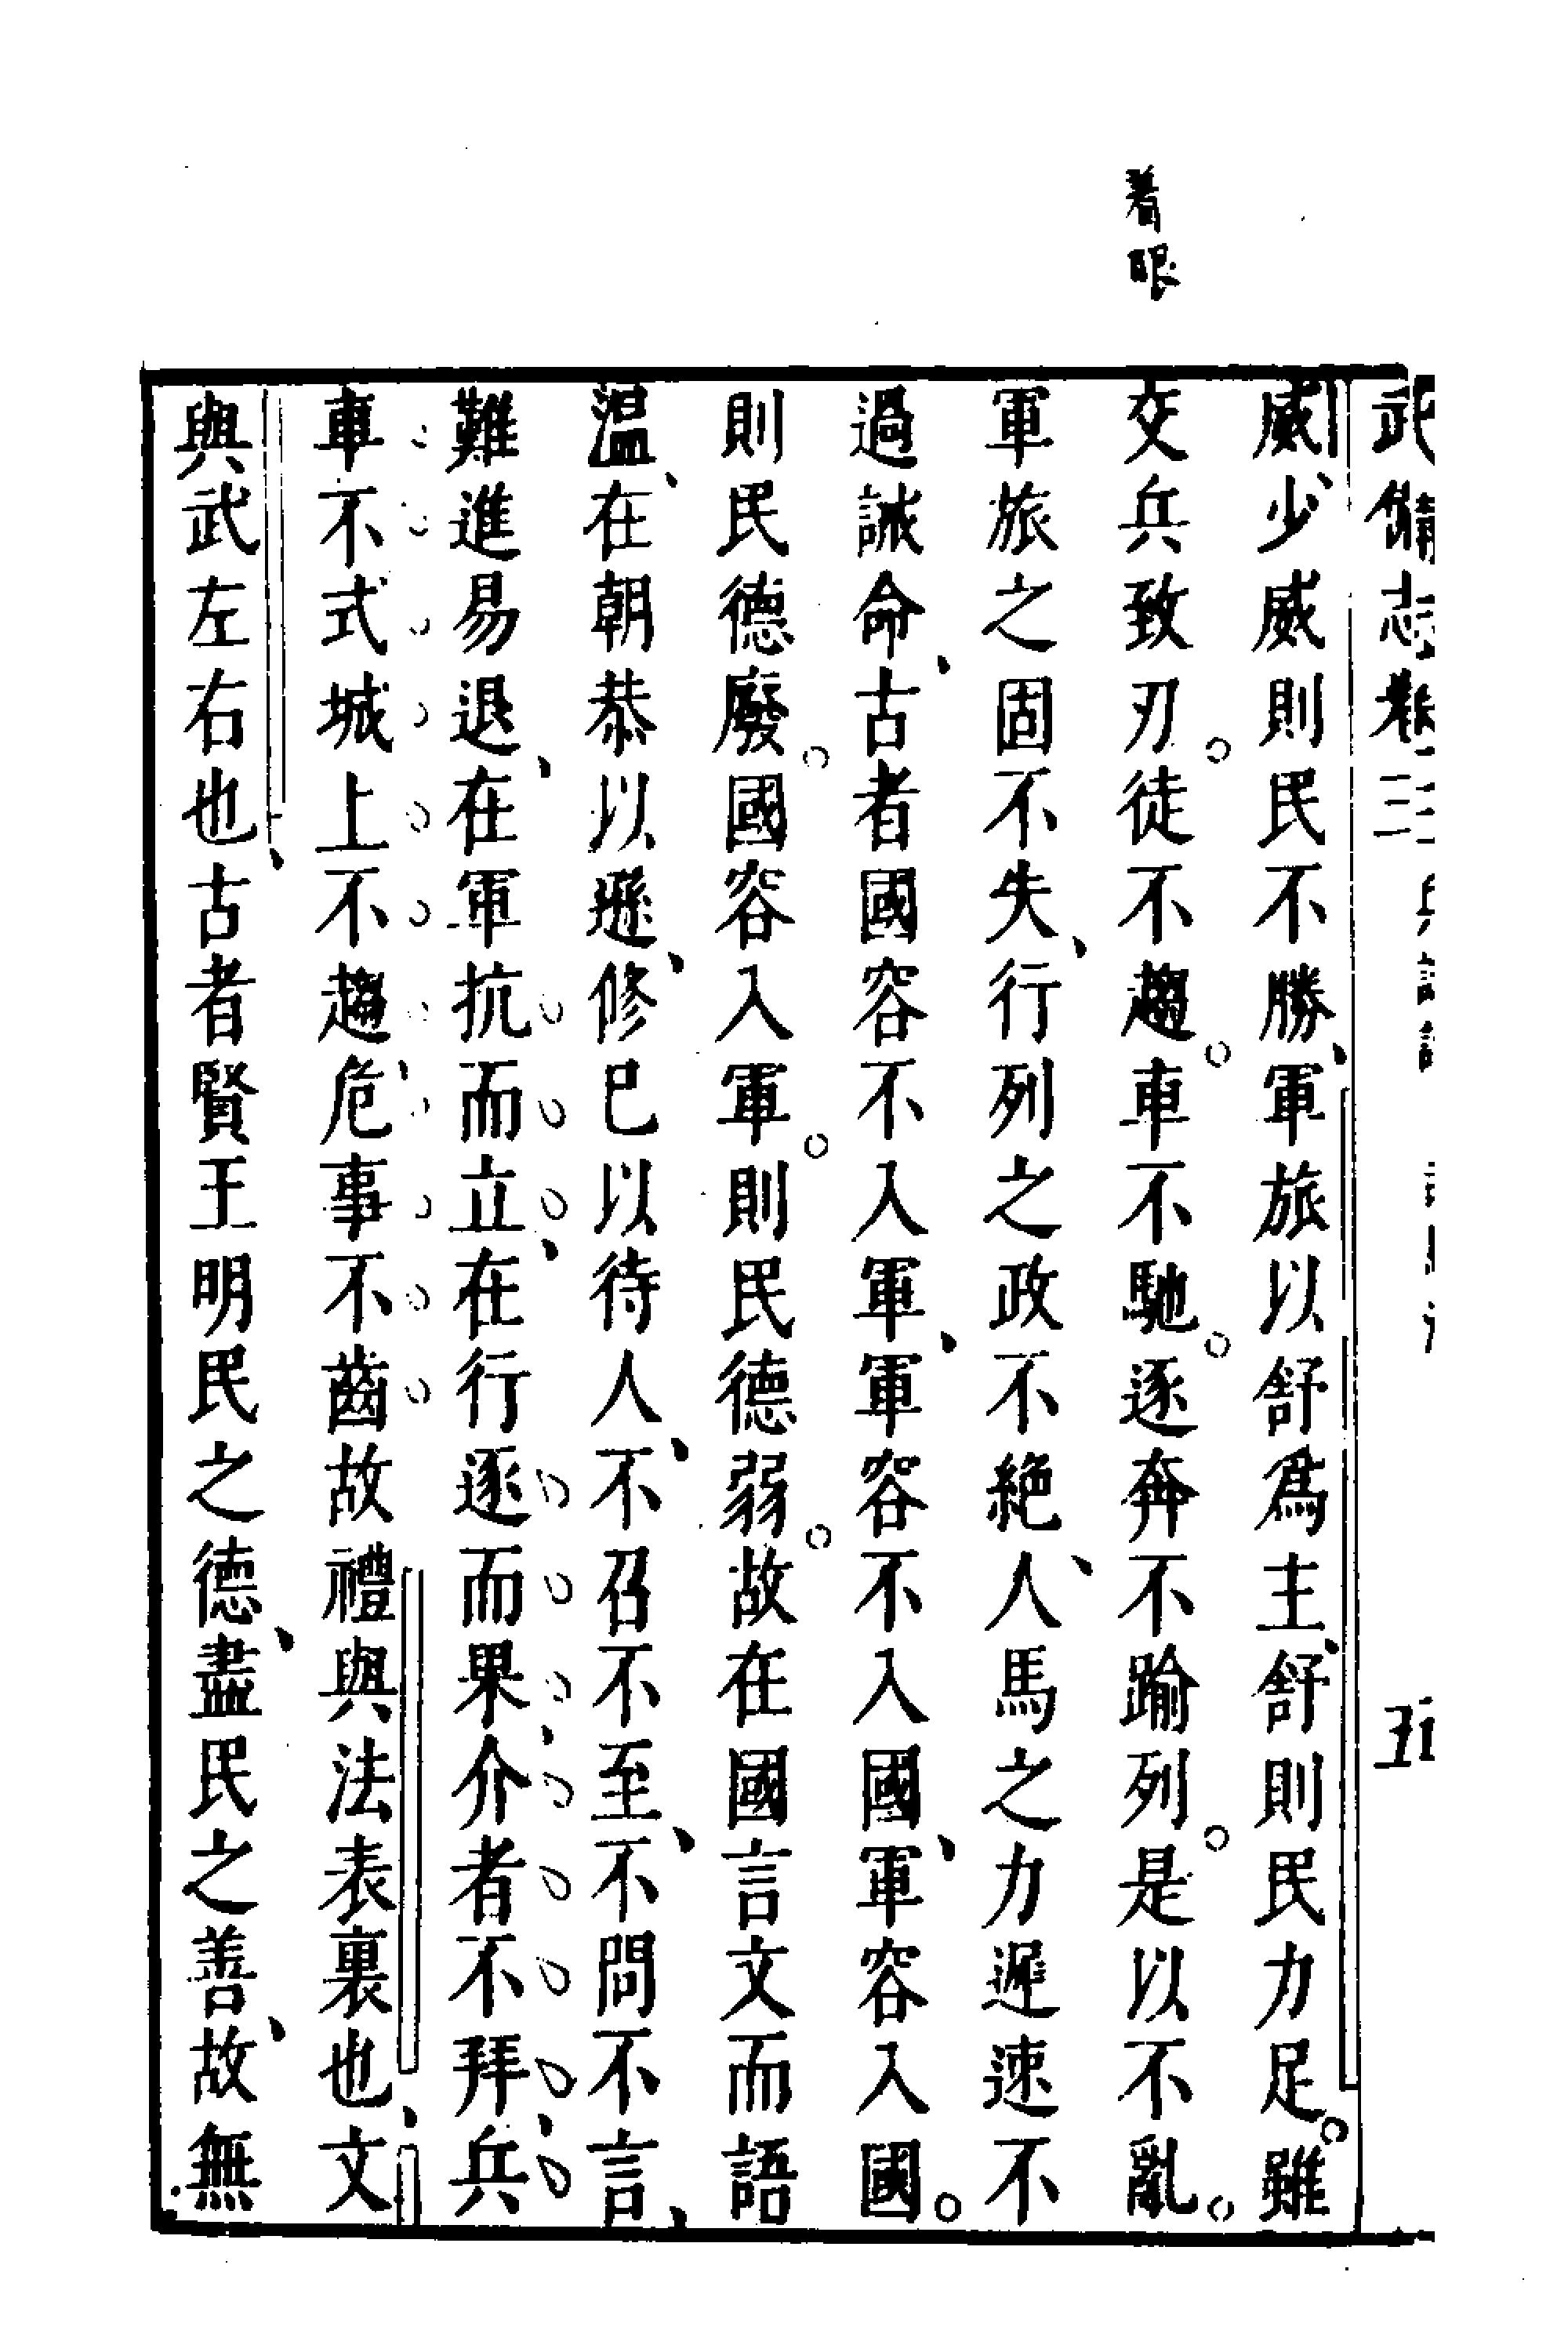 着眼
武備志卷三
五
威、少威則民不勝、軍旅以舒爲主、舒則民力足。雖
交兵致刃。徒不趨。車不馳。逐奔不踰列。是以不亂。
軍旅之固不失、行列之政不絕、人馬之力遲速不
過誡命、古者國容不入軍、軍容不入國、軍容入國。
則民德廢。國容入軍。則民德弱。故在國言文而語
溫、在朝恭以遜、修己以待人、不召不至、不問不言、
難進易退、在軍抗而立、在行逐而果、介者不拜、兵
車不式城上不趨、危事不齒故禮與法表裏也、文
與武左右也、古者賢王明民之德、盡民之善、故無